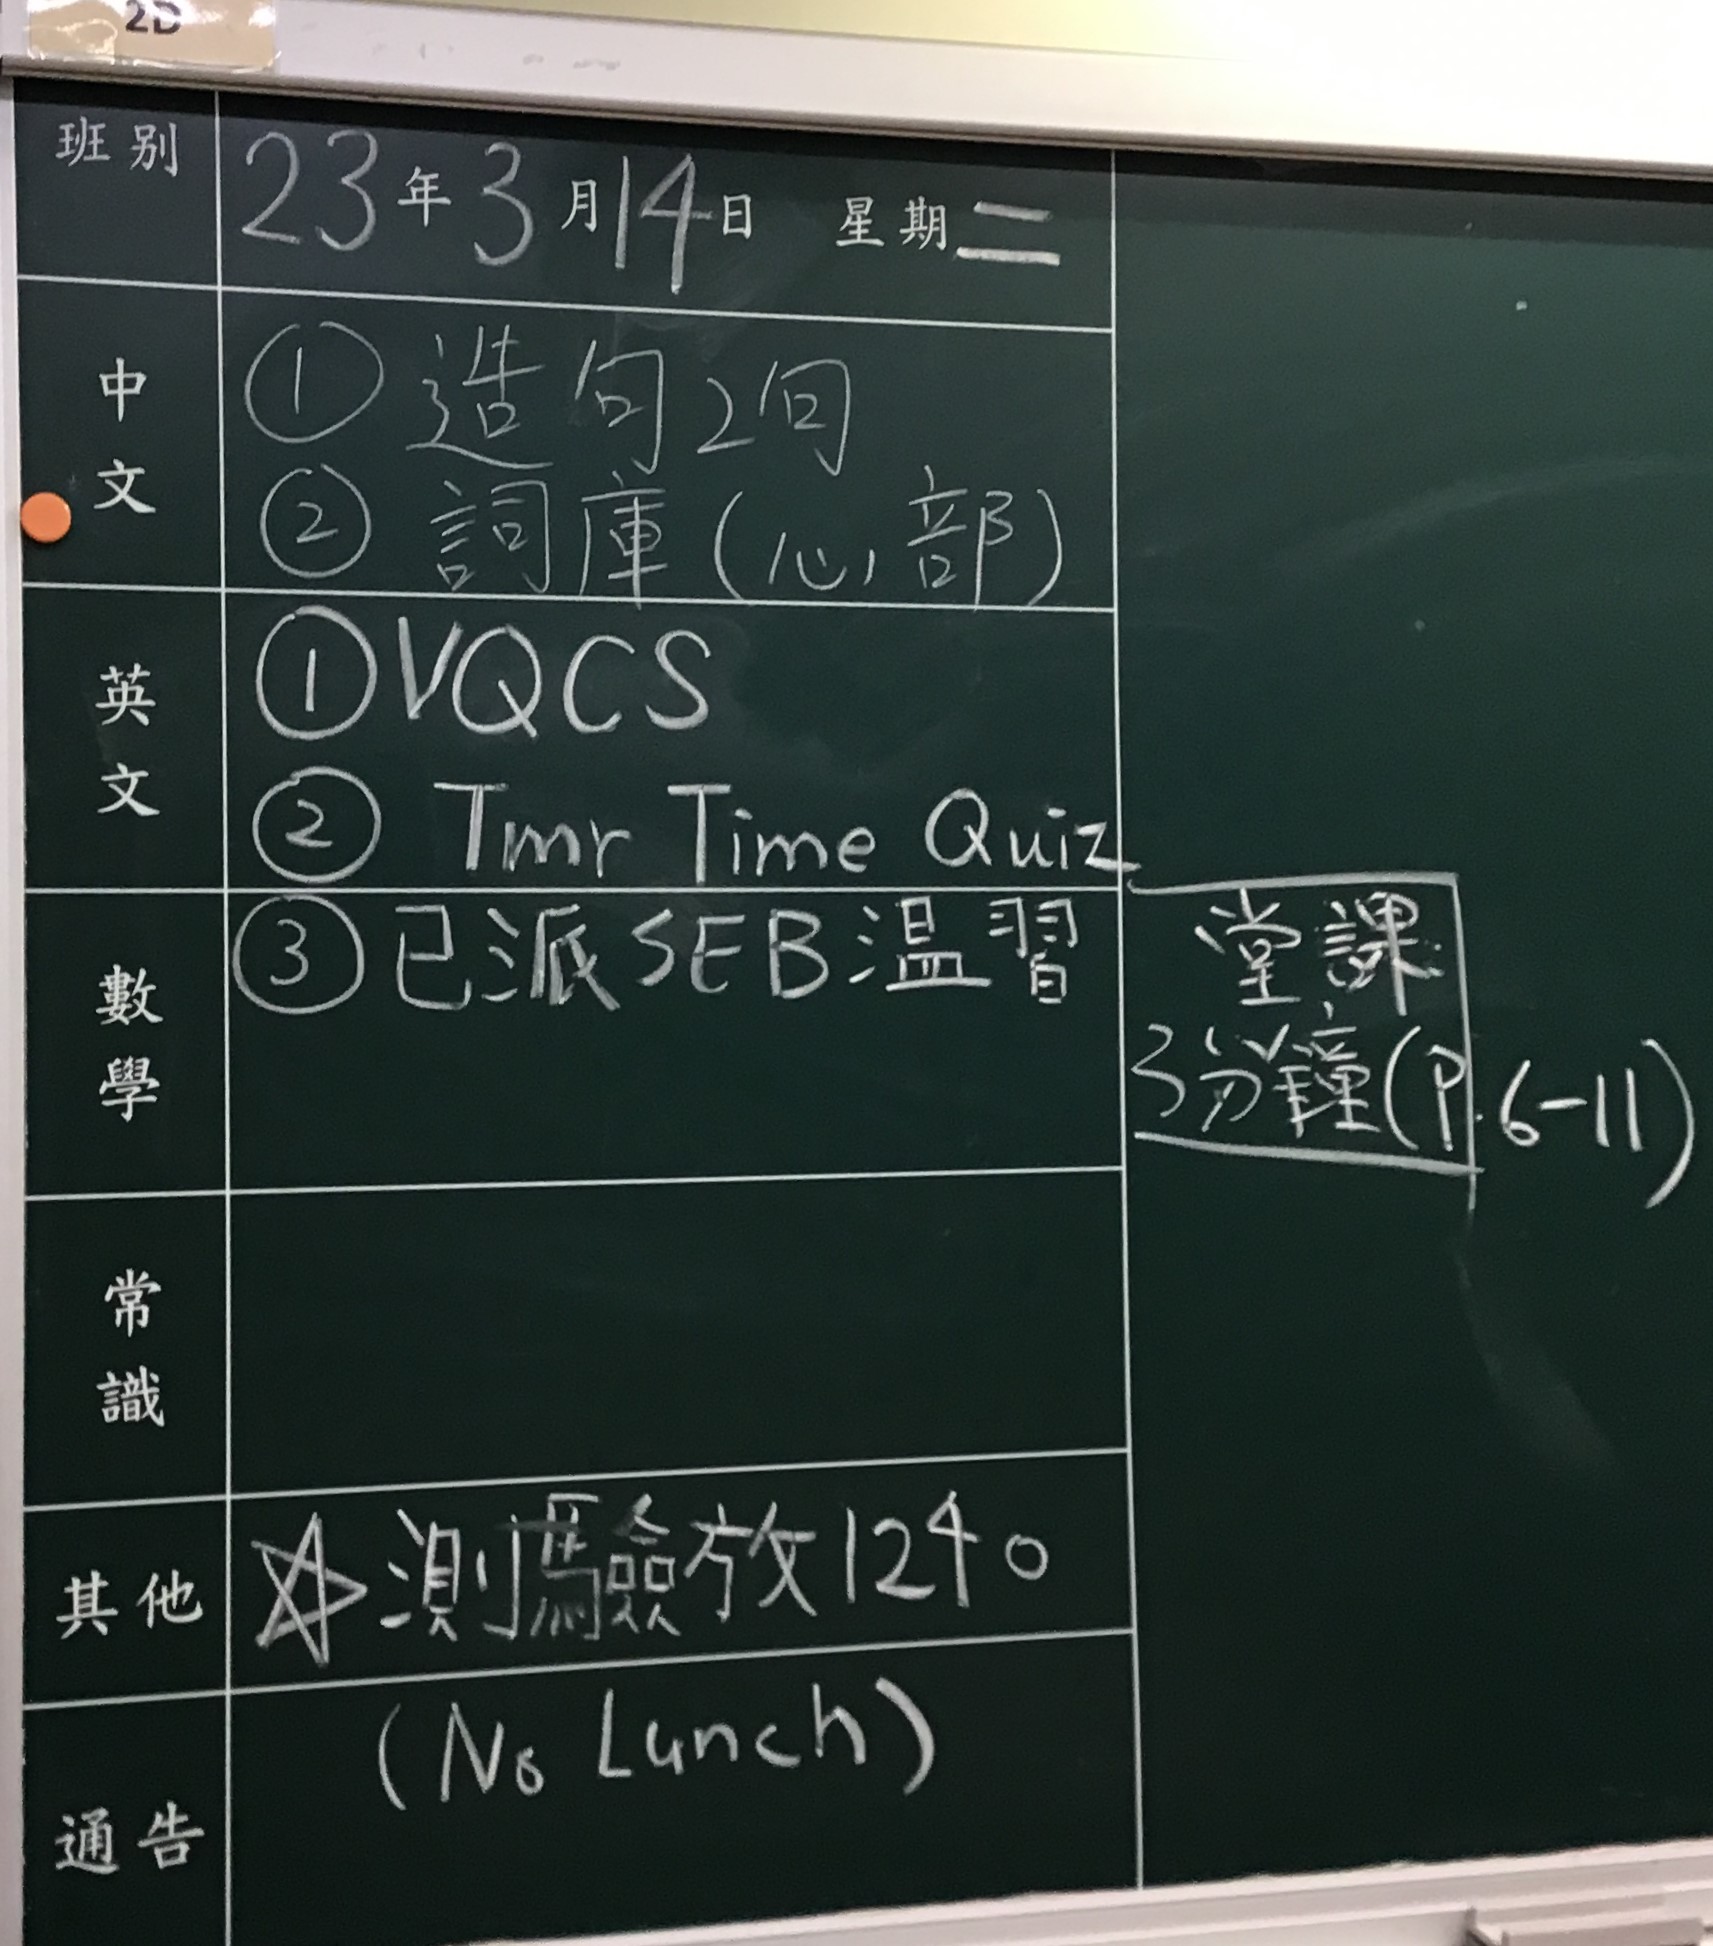 2D
班別 23年3月14日 星期二
中文 ① 造句2句
② 詞庫(心部)
英文 ① VQCS
② Tmr Time Quiz
數學 ③ 已派SEB溫習
堂課
3分鐘(P.6-11)
常識
其他 ☆測驗放1240
(No Lunch)
通告